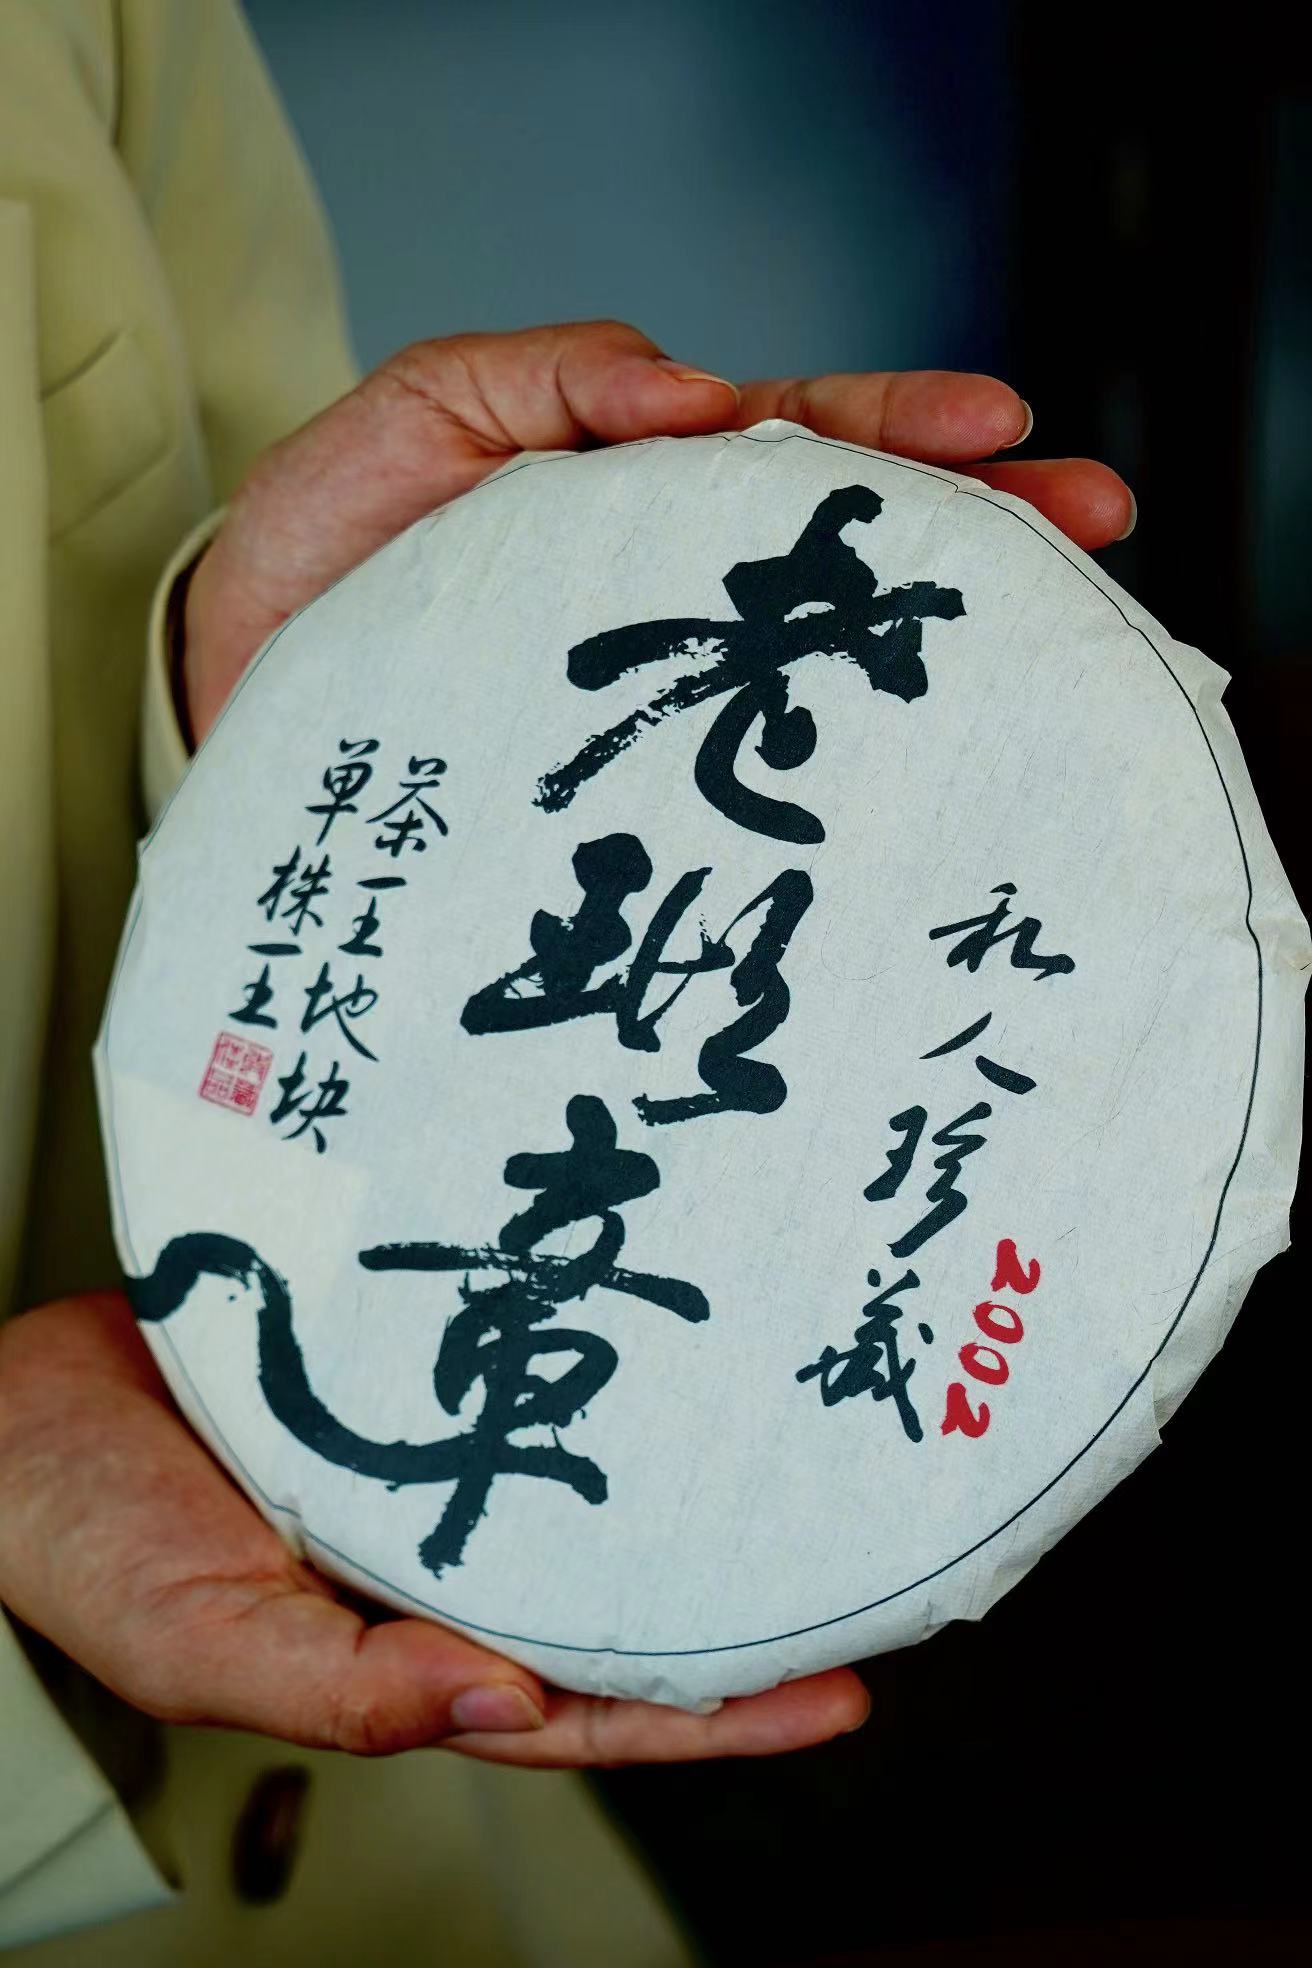 老班章
私人珍藏
2002
茶王地块
单株王